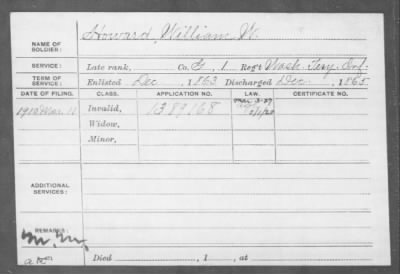 Howard, William W.
NAME OF
SOLDIER:
SERVICE: Late rank, Co. G, 1 Reg't Wash. Tery. Inf.
TERM OF
SERVICE: Enlisted Dec , 1863. Discharged Dec , 1865.
DATE OF FILING. CLASS. APPLICATION NO. LAW. CERTIFICATE NO.
1912 Mar. 11 Invalid, 1389168
Widow,
Minor,
ADDITIONAL
SERVICES:
REMARKS:
Died , 1 , at